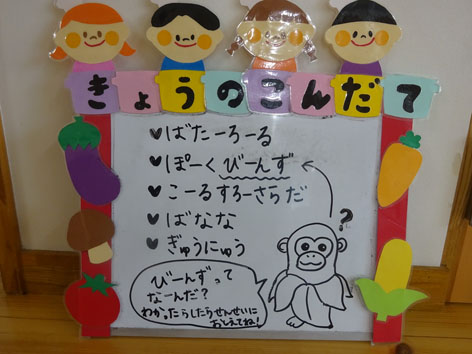 きょうのこんだて
♥ばたーろーる
♥ぽーくびーんず
♥こーるすろーさらだ
♥ばなな
♥ぎゅうにゅう
?
びーんずって
なーんだ?
わかったらしたらせんせいに
おしえてね!